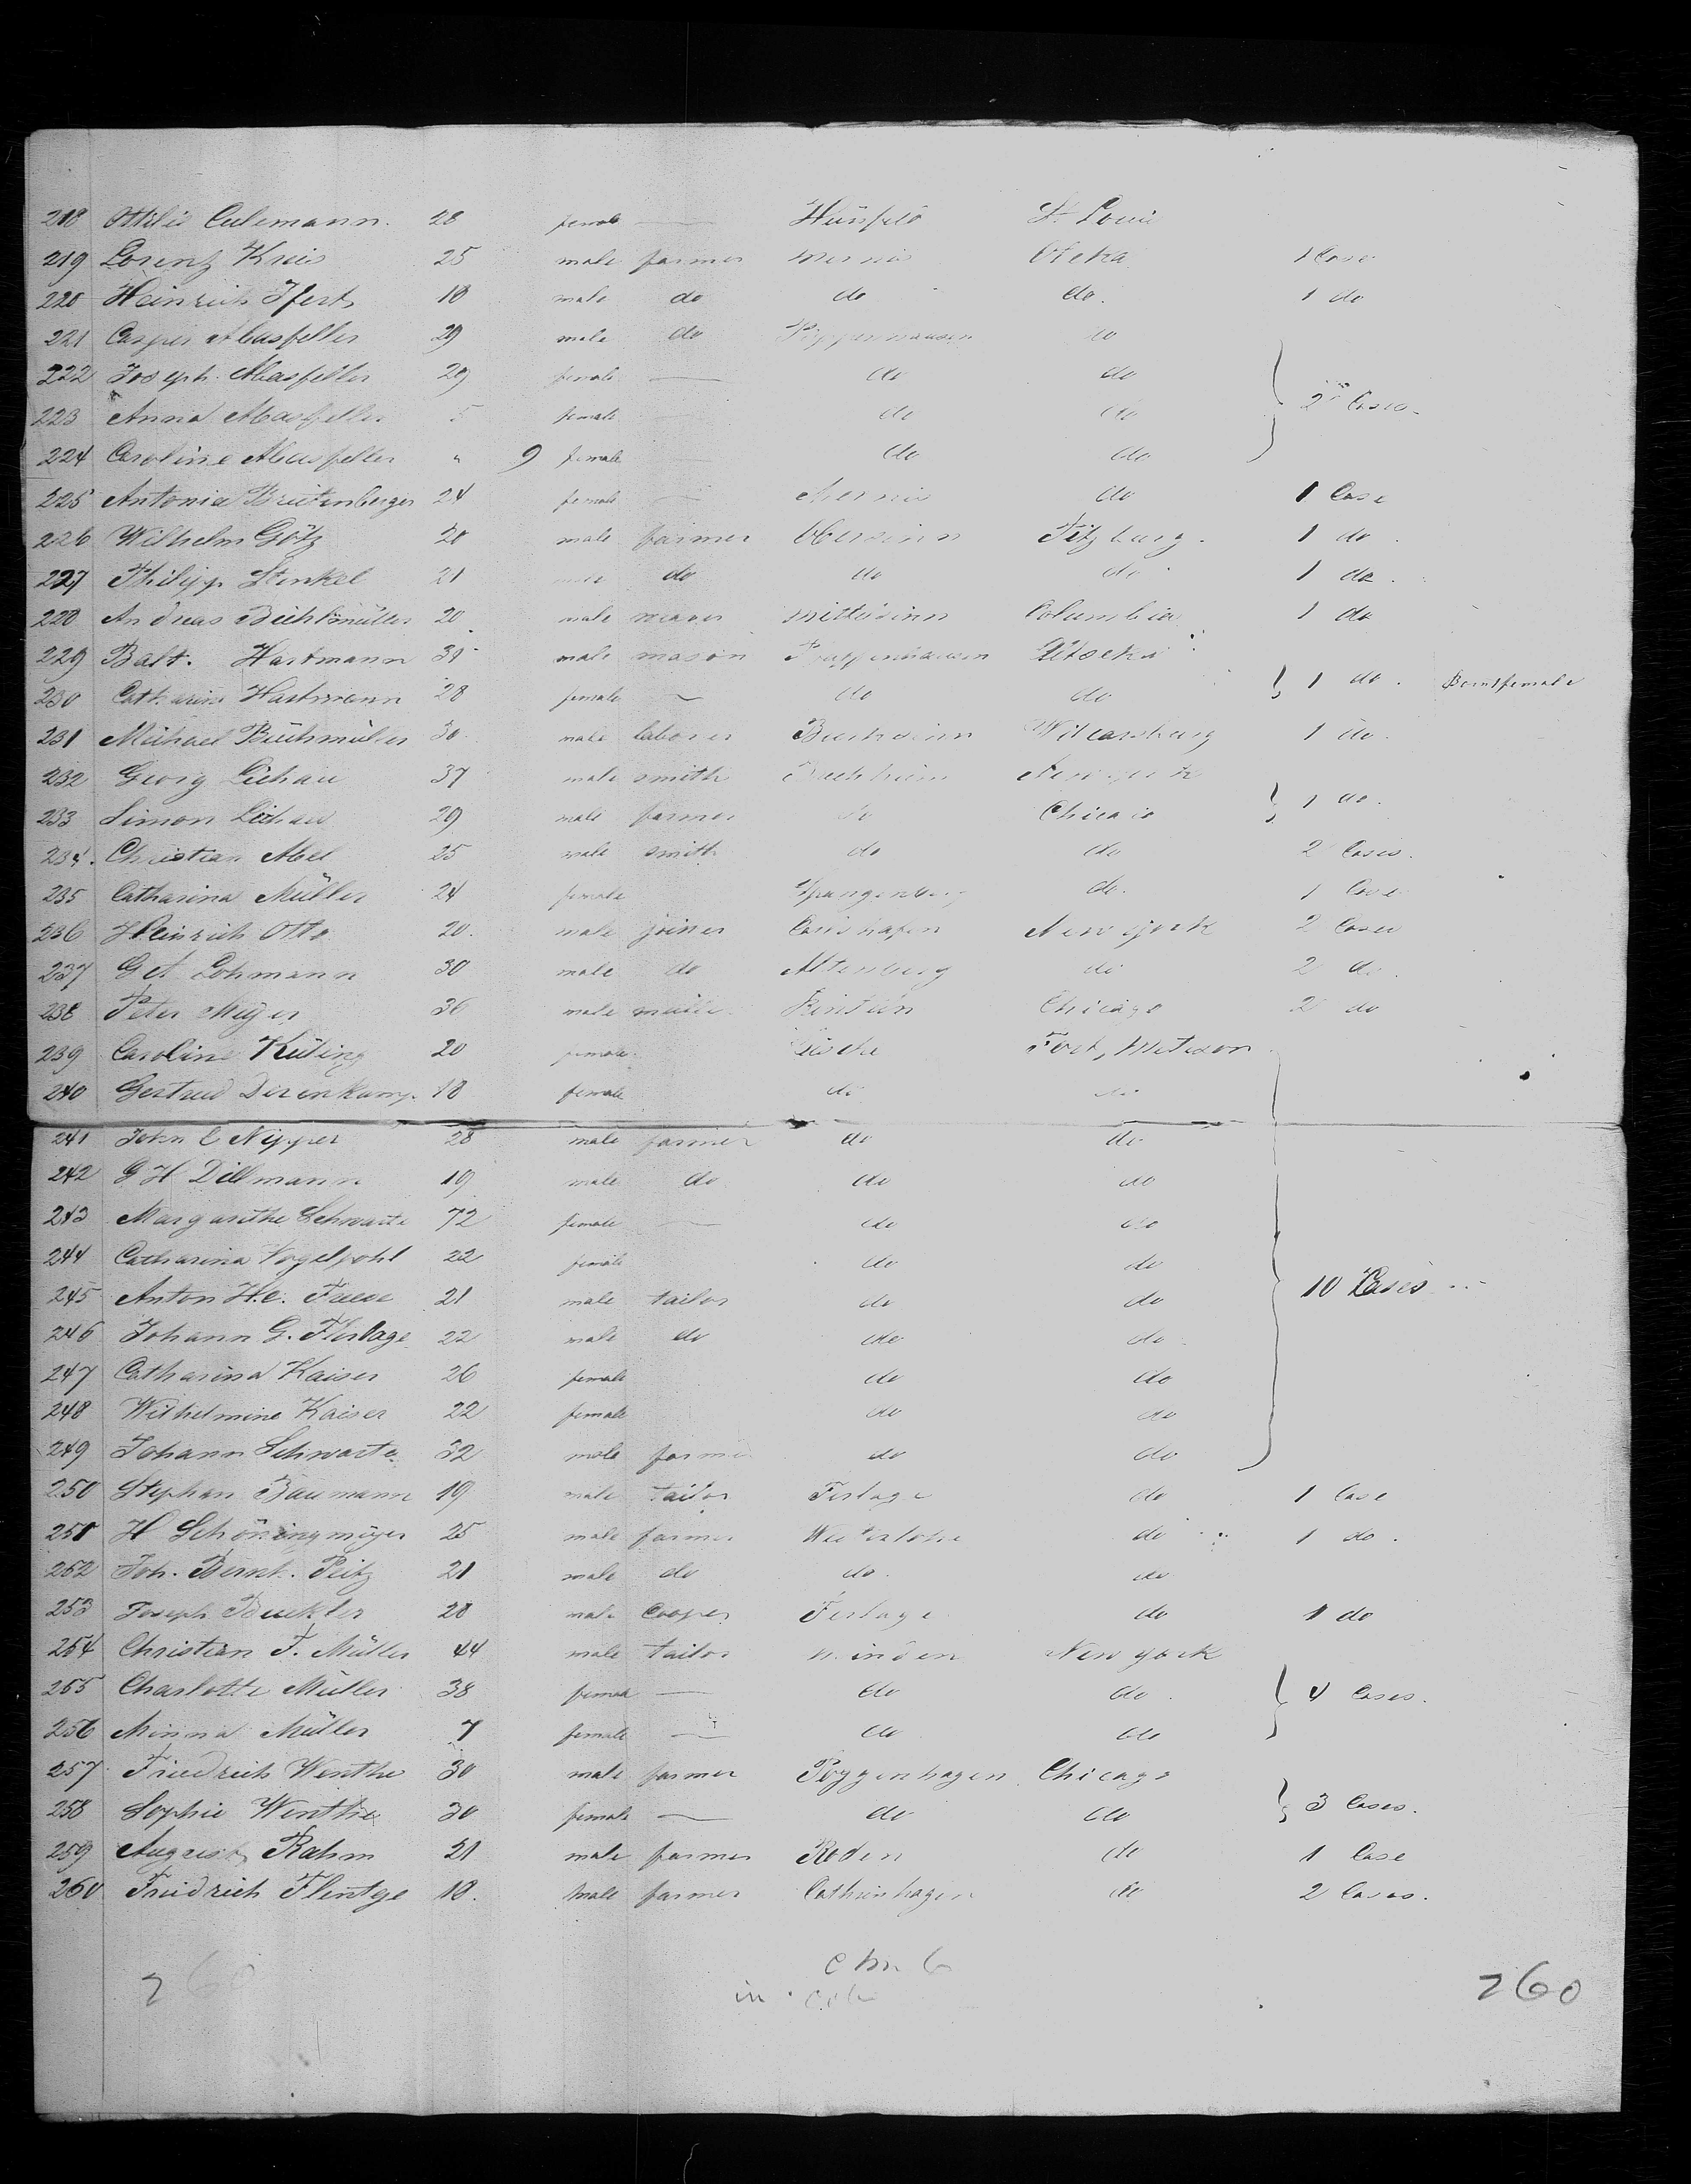 218 Ottilie Culemann. 28 female — Hünfeld St Louis
219 Lorenz Kreis 25 male farmer Mernis Utika 1 Case
220 Heinrich Ifert 18 male do do do. 1 do
221 Casper Masfeller 29 male do Poppenhausen do
222 Joseph. Masfeller 29 female — do do
223 Anna Masfeller 5 female do do 2 Cases.
224 Caroline Masfeller " 9 female do do
225 Antonia Breitenberger 24 female — Mernis do 1 Case
226 Wilhelm Götz 20 male farmer Obersinn Pitzburg. 1 do.
227 Philipp Stenkel 21 do do do 1 do.
228 Andreas 20 male weaver Mittelsinn Columbia 1 do
229 Balt. Hartmann 31 male mason
230 Catharine Hartmann 28 female — do do 1 do.
231 Michael 30 male laborer 1 do.
232 Georg Lichau 37 male smith New york
233 Simon Lichau 29 male farmer do Chicago 1 do.
234. Christian Abel 25 male smith do do 2 Cases.
235 Catharina Müller 24 female Spangenberg do. 1 Case
236 Heinrich Otto 20. male joiner Carlshafen New york 2 Cases
237 Get Lohmann 30 male do Altenburg do 2 do.
238 Peter Meyer 36 male Rinteln Chicago 2 do
239 Caroline Küling 20 female Fort,
240 Gertrud Derenkamp. 18 female do do
241 John C Nipper 28 male farmer do do
242 G H Dillmann 19 male do do do
243 Margarethe Schwarte 72 female — do do
244 Catharina Vogelpohl 22 female do do
245 Anton H.C. 21 male tailor do do 10 Cases
246 Johann G. Förlage 22 male do do do
247 Catharina Kaiser 26 female do do
248 Wilhelmine Kaiser 22 female do do
249 Johann Schwarte 32 male farmer do do
250 Stephan Baumann 19 male tailor Ferlage do 1 Case
251 H Schöningmeyer 25 male farmer do 1 do.
252 Joh. Bernh. Peitz 21 male do do. do
253 Joseph 28 male Cooper Ferlage do 1 do
254 Christian F. Müller 44 male tailor Minden New york
255 Charlotte Müller 38 female — do do. 4 Cases.
256 Minna Müller 7 female — do do
257 Friedrich Wenthe 30 male farmer Poggenhagen Chicago
258 Sophie Wenthe 30 female — do do 3 Cases.
259 August Rahm 21 male farmer Roden do 1 Case
260 Friedrich Flentge 18. male farmer Cathrinhagen do 2 Cases.
260 260